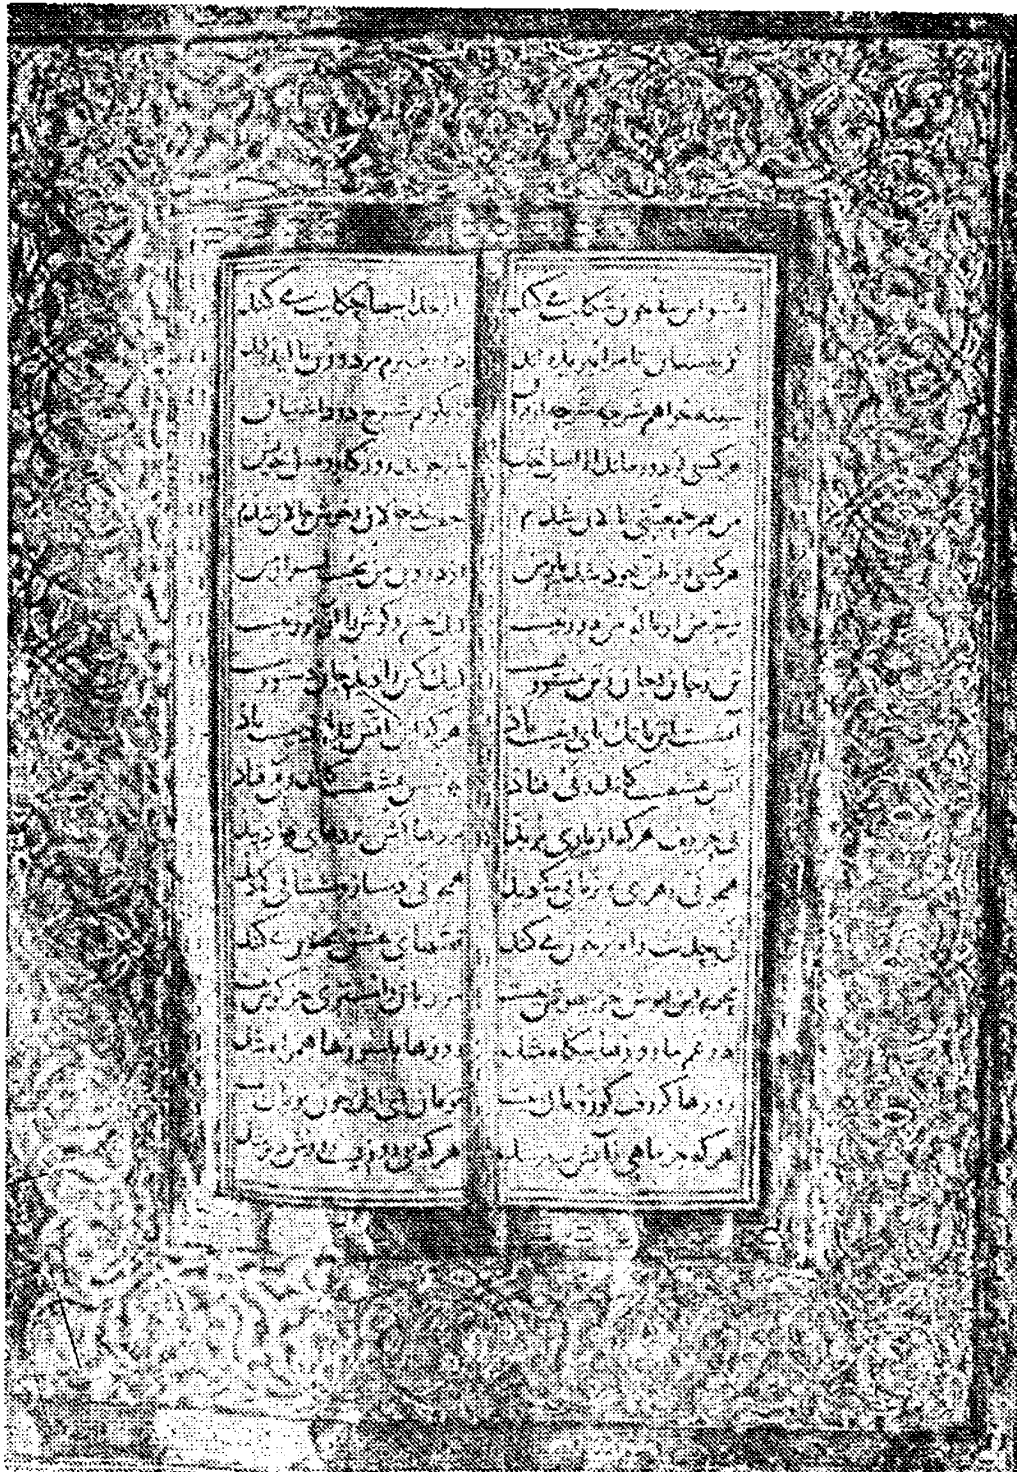 بشنو این نی چون شکایت می کند از جداییها حکایت می کند
کز نیستان تا مرا ببریده اند در نفیرم مرد و زن نالیده اند
سینه خواهم شرحه شرحه از فراق تا بگویم شرح درد اشتیاق
هر کسی کو دور ماند از اصل خویش باز جوید روزگار وصل خویش
من بهر جمعیتی نالان شدم جفت بدحالان و خوش حالان شدم
هر کسی از ظن خود شد یار من از درون من نجست اسرار من
سر من از ناله من دور نیست لیک چشم و گوش را آن نور نیست
تن ز جان و جان ز تن مستور نیست لیک کس را دید جان دستور نیست
آتشست این بانگ نای و نیست باذ هرکه این آتش ندارد نیست باذ
آتش عشقست کاندر نی فتاذ جوشش عشقست کاندر می فتاذ
نی حریف هرکه از یاری برید پردهااش پردهای ما درید
همچو نی زهری و تریاقی که دید همچو نی دمساز و مشتاقی که دید
نی حدیث راه پر خون می کند قصهای عشق مجنون می کند
محرم این هوش جز بیهوش نیست مر زبان را مشتری جز گوش نیست
در غم ما روزها بیگاه شد روزها با سوزها همراه شد
روزها گر رفت گو رو باک نیست تو بمان ای آنک چون تو پاک نیست
هرکه جز ماهی ز آبش سیر شد هرکه بی روزیست روزش دیر شد